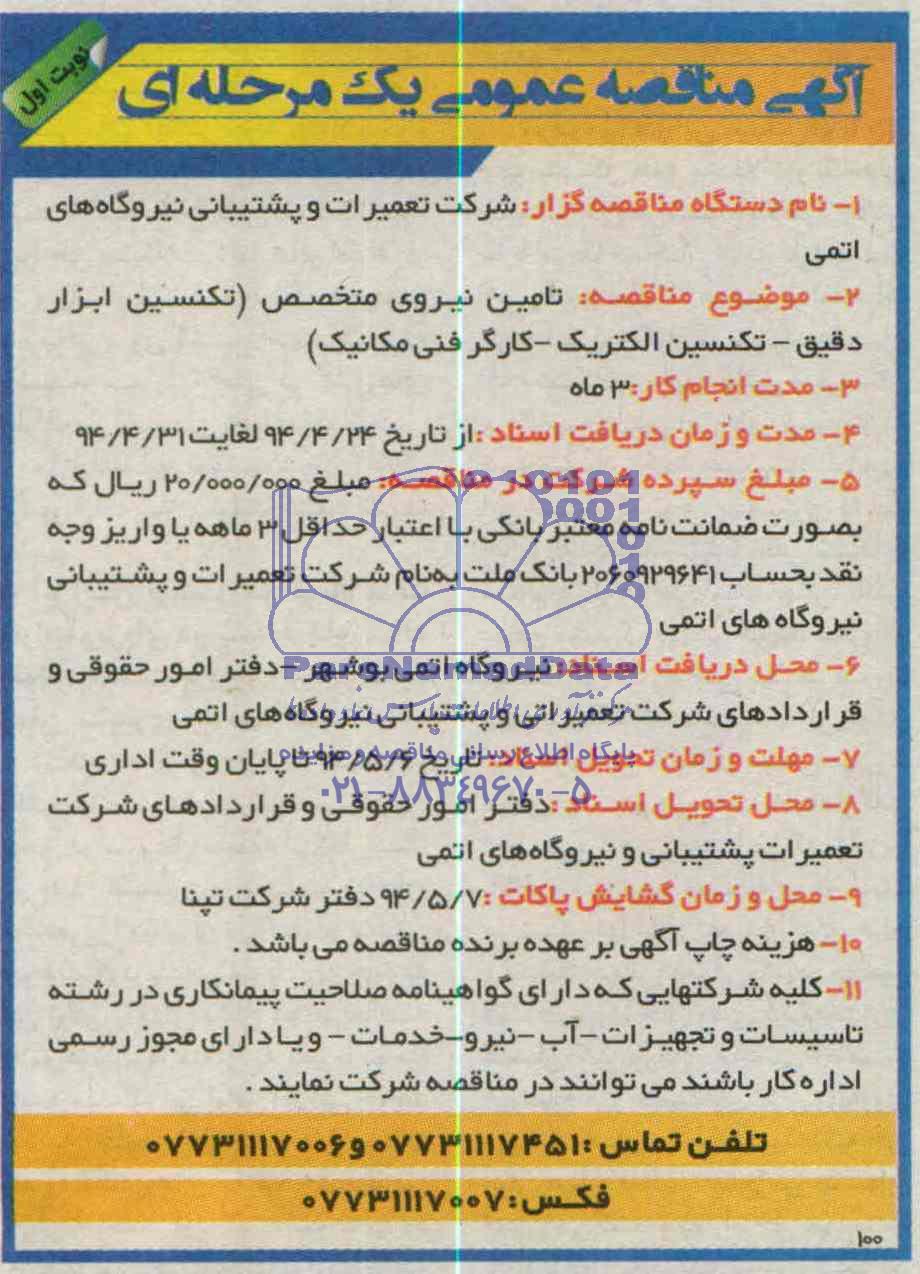 نوبت اول
آگهی مناقصه عمومی یک مرحله ای
۱- نام دستگاه مناقصه گزار: شرکت تعمیرات و پشتیبانی نیروگاه‌های
اتمی
۲- موضوع مناقصه: تامین نیروی متخصص (تکنسین ابزار
دقیق - تکنسین الکتریک -کارگر فنی مکانیک)
۳- مدت انجام کار: ۳ ماه
۴- مدت و زمان دریافت اسناد :از تاریخ ۹۴/۴/۲۴ لغایت ۹۴/۴/۳۱
۵- مبلغ سپرده شرکت در مناقصه: مبلغ ۲۰/۰۰۰/۰۰۰ ریال که
بصورت ضمانت نامه معتبر بانکی با اعتبار حداقل ۳ ماهه یا واریز وجه
نقد بحساب ۲۰۶۰۹۲۹۶۴۱ بانک ملت به‌نام شرکت تعمیرات و پشتیبانی
نیروگاه های اتمی
۶- محل دریافت اسناد: نیروگاه اتمی بوشهر -دفتر امور حقوقی و
قراردادهای شرکت تعمیراتی و پشتیبانی نیروگاه‌های اتمی
۷- مهلت و زمان تحویل اسناد: تاریخ ۹۴/۵/۶ تا پایان وقت اداری
۸- محل تحویل اسناد :دفتر امور حقوقی و قراردادهای شرکت
تعمیرات پشتیبانی و نیروگاه‌های اتمی
۹- محل و زمان گشایش پاکات :۹۴/۵/۷ دفتر شرکت تپنا
۱۰- هزینه چاپ آگهی بر عهده برنده مناقصه می باشد .
۱۱- کلیه شرکتهایی که دارای گواهینامه صلاحیت پیمانکاری در رشته
تاسیسات و تجهیزات -آب -نیرو-خدمات - ویا دارای مجوز رسمی
اداره کار باشند می توانند در مناقصه شرکت نمایند .
تلفن تماس :۰۷۷۳۱۱۱۷۴۵۱ و ۰۷۷۳۱۱۱۷۰۰۶
فکس: ۰۷۷۳۱۱۱۷۰۰۷
۱۰۰
ParsNamadData
پایگاه اطلاع رسانی مناقصه و مزایده
۰۲۱-۸۸۳۴۹۶۷۰-۵